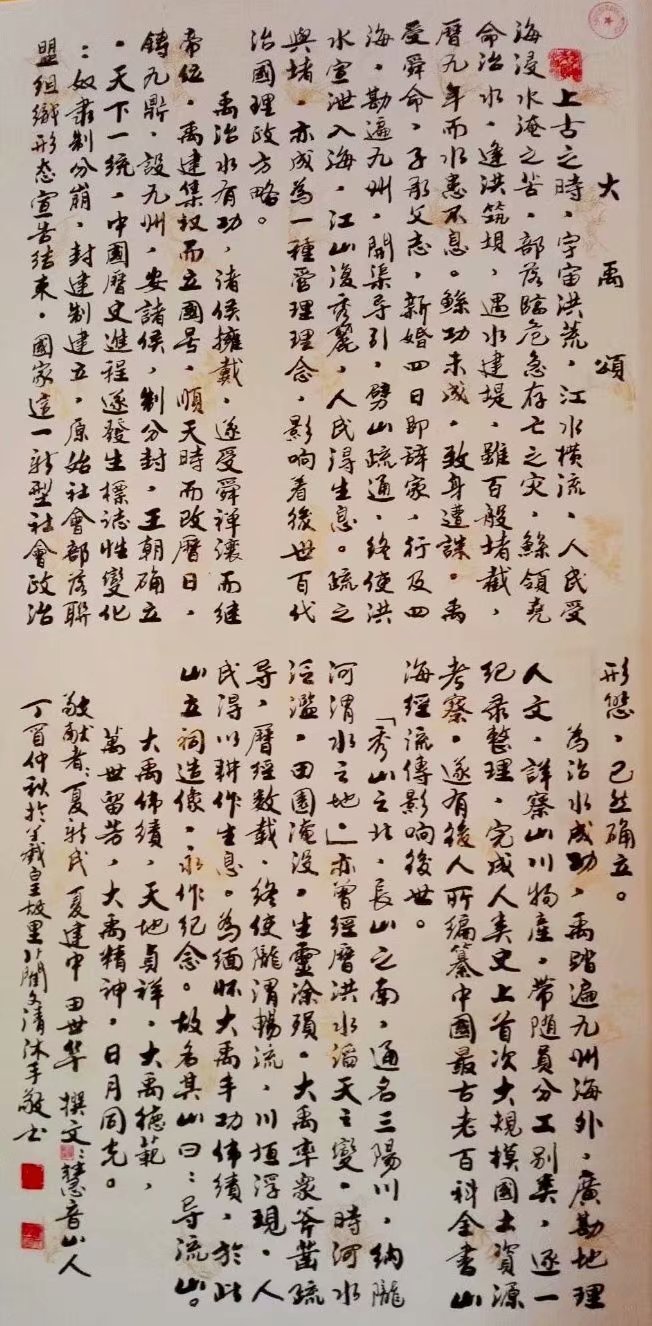 大禹頌
上古之時，宇宙洪荒，江水橫流，人民受
海浸水淹之苦，部落臨危急存亡之灾，鯀領堯
命治水，逢洪筑垻，遇水建堤，雖百般堵截，
曆九年而水患不息。鯀功未成，致身遭誅。禹
受舜命，子承父志，新婚四日即辞家，行及四
海，勘遍九州，開渠导引，劈山疏通，终使洪
水宣泄入海，江山復秀麗，人民得生息。疏之
與堵，亦成為一種管理理念，影响着後世百代
治國理政方略。
禹治水有功，诸侯擁戴，遂受舜禅讓而继
帝位，禹建集权而立國号，順天時而改曆日，
鑄九鼎，設九州，安諸侯，制分封，王朝确立
。天下一统，中國曆史進程遂發生標誌性變化
：奴隶制分崩，封建制建立，原始社會部落聯
盟组織形态宣告结束，國家這一新型社會政治
形態，已然确立。
為治水成功，禹踏遍九州海外，廣勘地理
人文，詳察山川物產，带随員分工别类，逐一
纪录整理，完成人类史上首次大規模國土資源
考察，遂有後人所編纂中國最古老百科全書山
海經流傳影响後世。
「秀山之北，長山之南，通名三陽川，纳隴
河渭水之地」亦曾經曆洪水滔天之變，時河水
泛濫，田園淹没，生靈涂殞，大禹率衆斧凿疏
导，曆经数载，终使隴渭暢流，川垣浮現，人
民得以耕作生息。為緬怀大禹丰功伟绩，於此
山立祠造像，永作纪念。故名其山曰：导流山。
大禹伟績，天地貞祥，大禹德範，
萬世留芳，大禹精神，日月同光。
敬献者：夏新民 夏建中 田世华 撰文：慧音山人
丁酉仲秋於羲皇故里 文清沐手敬书